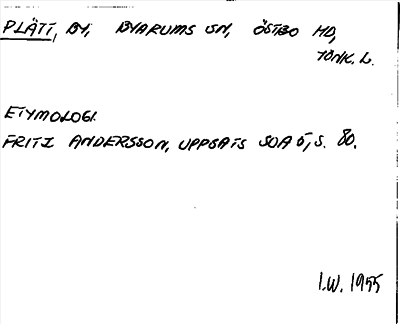 PLÄTT, BY, BYARUMS SN, ÖSTBO HD,
JÖNK. L.
ETYMOLOGI.
FRITZ ANDERSSON, UPPSATS SOA 5, S. 80.
I.W. 1955